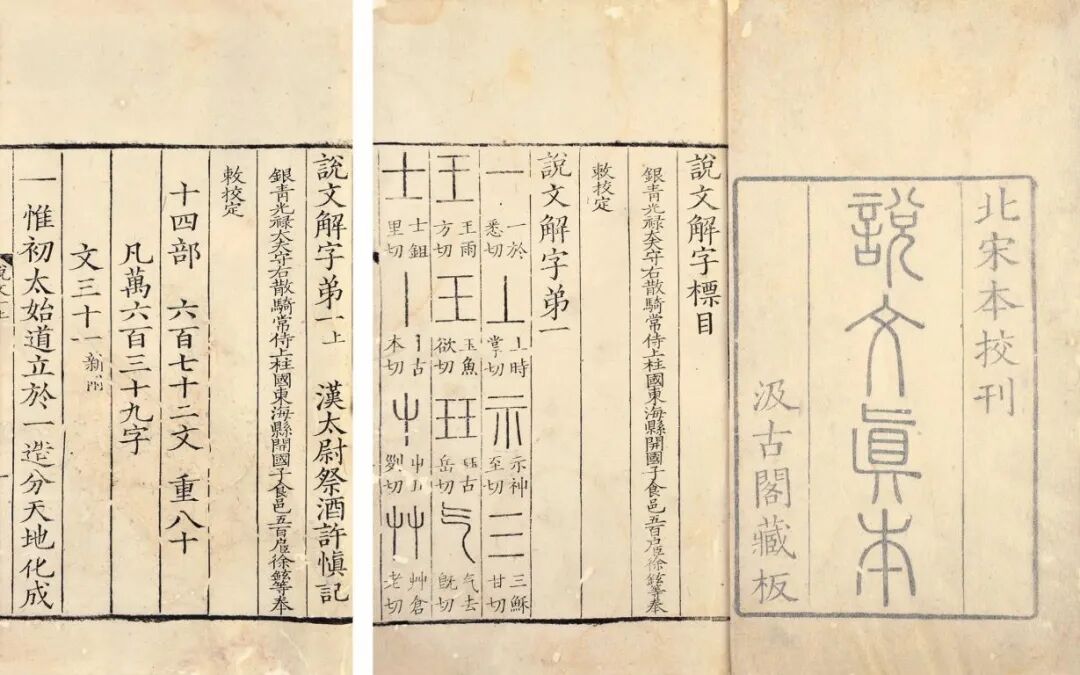 北宋本挍刊
說文眞本
汲古閣藏板
說文解字標目
銀青光祿大夫守右散騎常侍上柱國東海縣開國子食邑五百戶徐鉉等奉
敕挍定
說文解字弟一
一 一於悉切 丄 丄時掌切 示 示神至切 三 三穌甘切
王 王雨方切 玉 玉魚欲切 玨 玨古岳切 气 气去旣切
士 士鉏里切 丨 丨古本切 屮 屮 切 艸 艸倉老切
說文解字弟一上 漢太尉祭酒許愼記
銀青光祿大夫守右散騎常侍上柱國東海縣開國子食邑五百戶徐鉉等奉
敕挍定
十四部 六百七十二文 重八十
凡萬六百三十九字
文三十一新附
一惟初太始道立於一造分天地化成